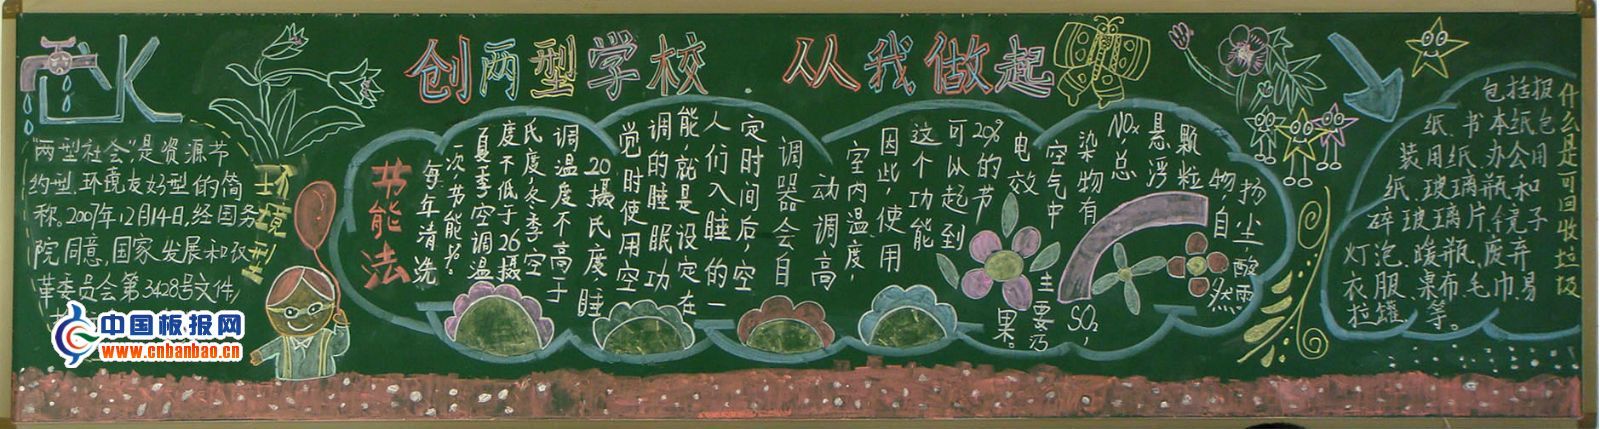 创两型学校 从我做起
"两型社会",是资源节
约型、环境友好型的简
称。2007年12月14日,经国务
院同意,国家发展和改
革委员会第3428号文件,
环境型
中国板报网
www.cnbanbao.cn
节能法
每年清洗
一次节能3%。
夏季空调温
度不低于26摄
氏度,冬季空
调温度不高于
20摄氏度,睡
觉时使用空
调的睡眠功
能,就是设定在
人们入睡的一
定时间后,空
调器会自
动调高
室内温度,
因此,使用
这个功能
可以起到
20%的节
电效
果。
空气中
主要污
染物有
SO₂,
NOx,总
悬浮
颗粒
物,自然
扬尘
酸雨
什么是可回收垃圾
包括报
纸、书本纸包
装用纸、办公用
纸、玻璃瓶和
碎玻璃片、镜子
灯泡、暖瓶、废弃
衣服、桌布、毛巾、易
拉罐、等。